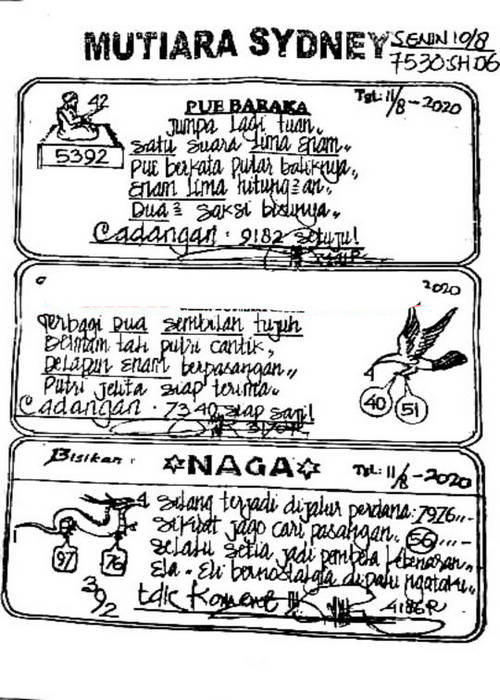 MUTIARA SYDNEY
SENIN 10/8
7530 SH 06
42
5392
PUE BARAKA
Tgl: 11/8-2020
Jumpa lagi tuan,,
satu suara lima enam,,
Pue berkata putar baliknya,,
enam lima hitungan,,
Dua saksi bisunya,,
Cadangan : 9182 setuju!
2020
Terbagi dua sembilan tujuh
Bermain tali putri cantik,
Delapan enam berpasangan,,
Putri jelita siap terima,,
Cadangan : 7340 siap saji!
40 51
Bisikan :
NAGA
Tgl: 11/8-2020
silang terjadi dijalur perdana: 7976,,,-
sifirat jago cari pasangan, 56,,,-
selalu setia jadi pembela kebenaran,,
Ela - Eli bernostalgia
97 76
302
tdk Koment !!!
4186R